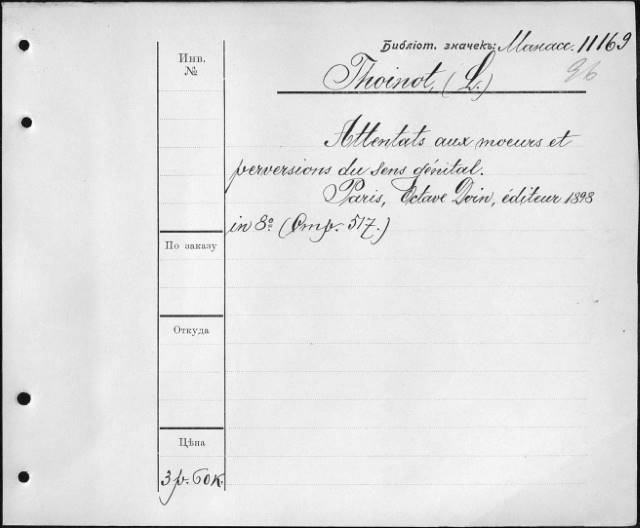 Библіот. значекъ: Манасс. 11169
96
Инв.
№
Thoinot, (L.)
Attentats aux moeurs et
perversions du sens génital.
Paris, Octave Doin, éditeur 1898
in 8º. (Стр. 517.)
По заказу
Откуда
Цѣна
3 р. 60 к.